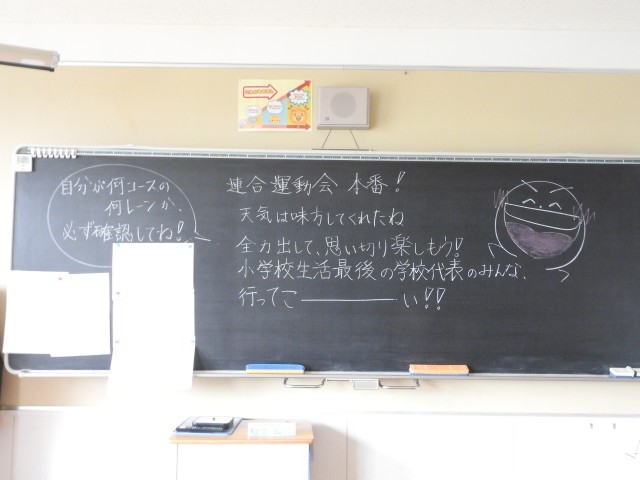 自分が何コースの
何レーンか、
必ず確認してね!
連合運動会 本番!
天気は味方してくれたね
全力出して、思い切り楽しもう!
小学校生活最後の学校代表のみんな、
行ってこ―――い!!